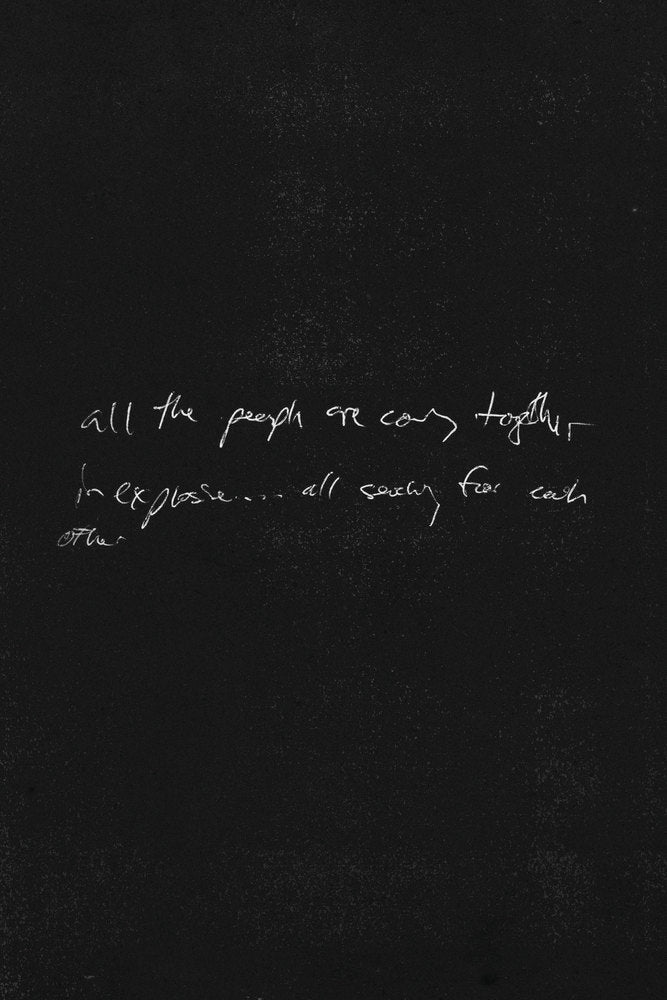 all the people are coming together
in explosive.... all searching for each
other